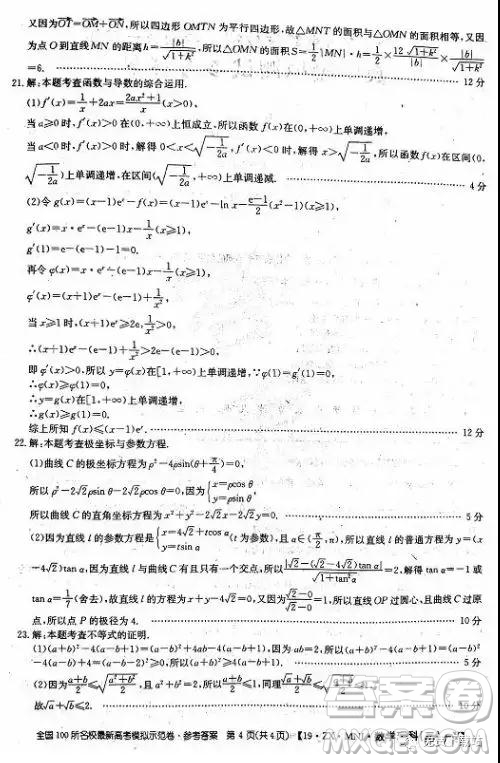 又因为OT=OM+ON,所以四边形 OMTN 为平行四边形,故△MNT 的面积与△OMN 的面积相等,又因
为点 O 到直线 MN 的距离 h=|b|/√(1+k²),所以△OMN 的面积 S=1/2|MN|·h=1/2×12√(1+k²)/|b|×|b|/√(1+k²)
=6. 12 分
21.解:本题考查函数与导数的综合运用.
(1)f′(x)=1/x+2ax=(2ax²+1)/x(x>0),
当 a≥0 时,f′(x)>0 在(0,+∞)上恒成立,所以函数 f(x)在(0,+∞)上单调递增;
当 a<0 时,f′(x)>0 时,解得 0<x<√(-1/2a),f′(x)<0 时,解得 x>√(-1/2a),所以函数 f(x)在区间(0,
√(-1/2a))上单调递增,在区间(√(-1/2a),+∞)上单调递减. 4 分
(2)令 g(x)=(x-1)eˣ-f(x)=(x-1)eˣ-ln x-(e-1)/2(x²-1)(x≥1),
g′(x)=x·eˣ-(e-1)x-1/x(x≥1),
g′(1)=e-(e-1)-1=0.
再令 φ(x)=x·eˣ-(e-1)x-1/x(x≥1),
φ′(x)=(x+1)eˣ-(e-1)+1/x²(x≥1),
当 x≥1 时,(x+1)eˣ≥2e,
∴(x+1)eˣ-(e-1)+1/x²>2e-(e-1)>0,
即 φ′(x)>0,所以 y=φ(x)在[1,+∞)上单调递增,∵φ(1)=g′(1)=0,
∴φ(x)≥φ(1)=0,
∴y=g(x)在[1,+∞)上单调递增,
∴g(x)≥g(1)=0.
综上所知 f(x)≤(x-1)eˣ. 12 分
22.解:本题考查极坐标与参数方程.
(1)曲线 C 的极坐标方程为 ρ²-4ρsin(θ+π/4)=0,
所以 ρ²-2√2ρsin θ-2√2ρcos θ=0,因为{x=ρcos θ y=ρsin θ,
所以曲线 C 的直角坐标方程为 x²+y²-2√2x-2√2y=0. 5 分
(2)因为直线 l 的参数方程为{x=4√2+tcos α y=tsin α(t 为参数),且 α∈(π/2,π),所以直线 l 的普通方程为 y=(x
-4√2)tan α,因为直线 l 与曲线 C 有且只有一个交点,所以|√2-(√2-4√2)tan α|/√(1+tan²α)=2,解得 tan α=-1 或
tan α=1/7(舍去),故直线 l 的方程为 x+y-4√2=0,又因为(√2-0)/(√2-0)=1,所以直线 OP 过圆心,且曲线 C 过原
点,所以点 P 的极径为 4. 10 分
23.解:本题考查不等式的证明.
(1)(a+b)²-4(a-b+1)=(a-b)²+4ab-4(a-b+1),因为 ab=2,所以(a+b)²-4(a-b+1)=(a-b)²
-4(a-b)+4=(a-b-2)²≥0,所以(a+b)²≥4(a-b+1). 5 分
10 分
全国 100 所名校最新高考模拟示范卷·参考答案 第 4 页(共 4 页) 【19·ZX·MNJ·数学